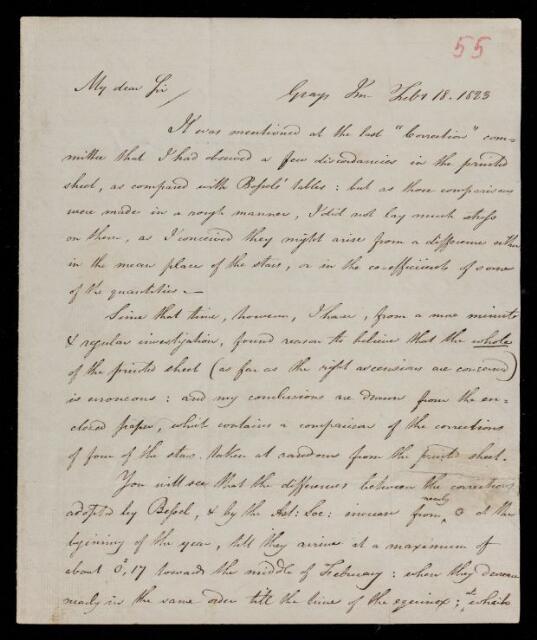 55
My dear Sir
Grays Inn Feby 18. 1823
It was mentioned at the last "Correction" com-
mittee that I had observed a few discordancies in the printed
sheet, as compared with Bessel's tables: but as those comparisons
were made in a rough manner, I did not lay much stress
on them, as I conceived they might arise from a difference either
in the mean place of the stars, or in the co-efficients of some
of the quantities.—
Since that time, however, I have, from a more minute
& regular investigation, found reason to believe that the whole
of the printed sheet (as far as the right ascensions are concerned)
is erroneous: and my conclusions are drawn from the en-
closed paper, which contains a comparison of the corrections
of four of the stars taken at random from the printed sheet.
You will see that the differences between the corrections
adopted by Bessel, & by the Ast: Soc: increase from nearly 0 at the
beginning of the year, till they arrive at a maximum of
about 0,17 towards the middle of February: when they decrease
nearly in the same order till the time of the equinox; at which